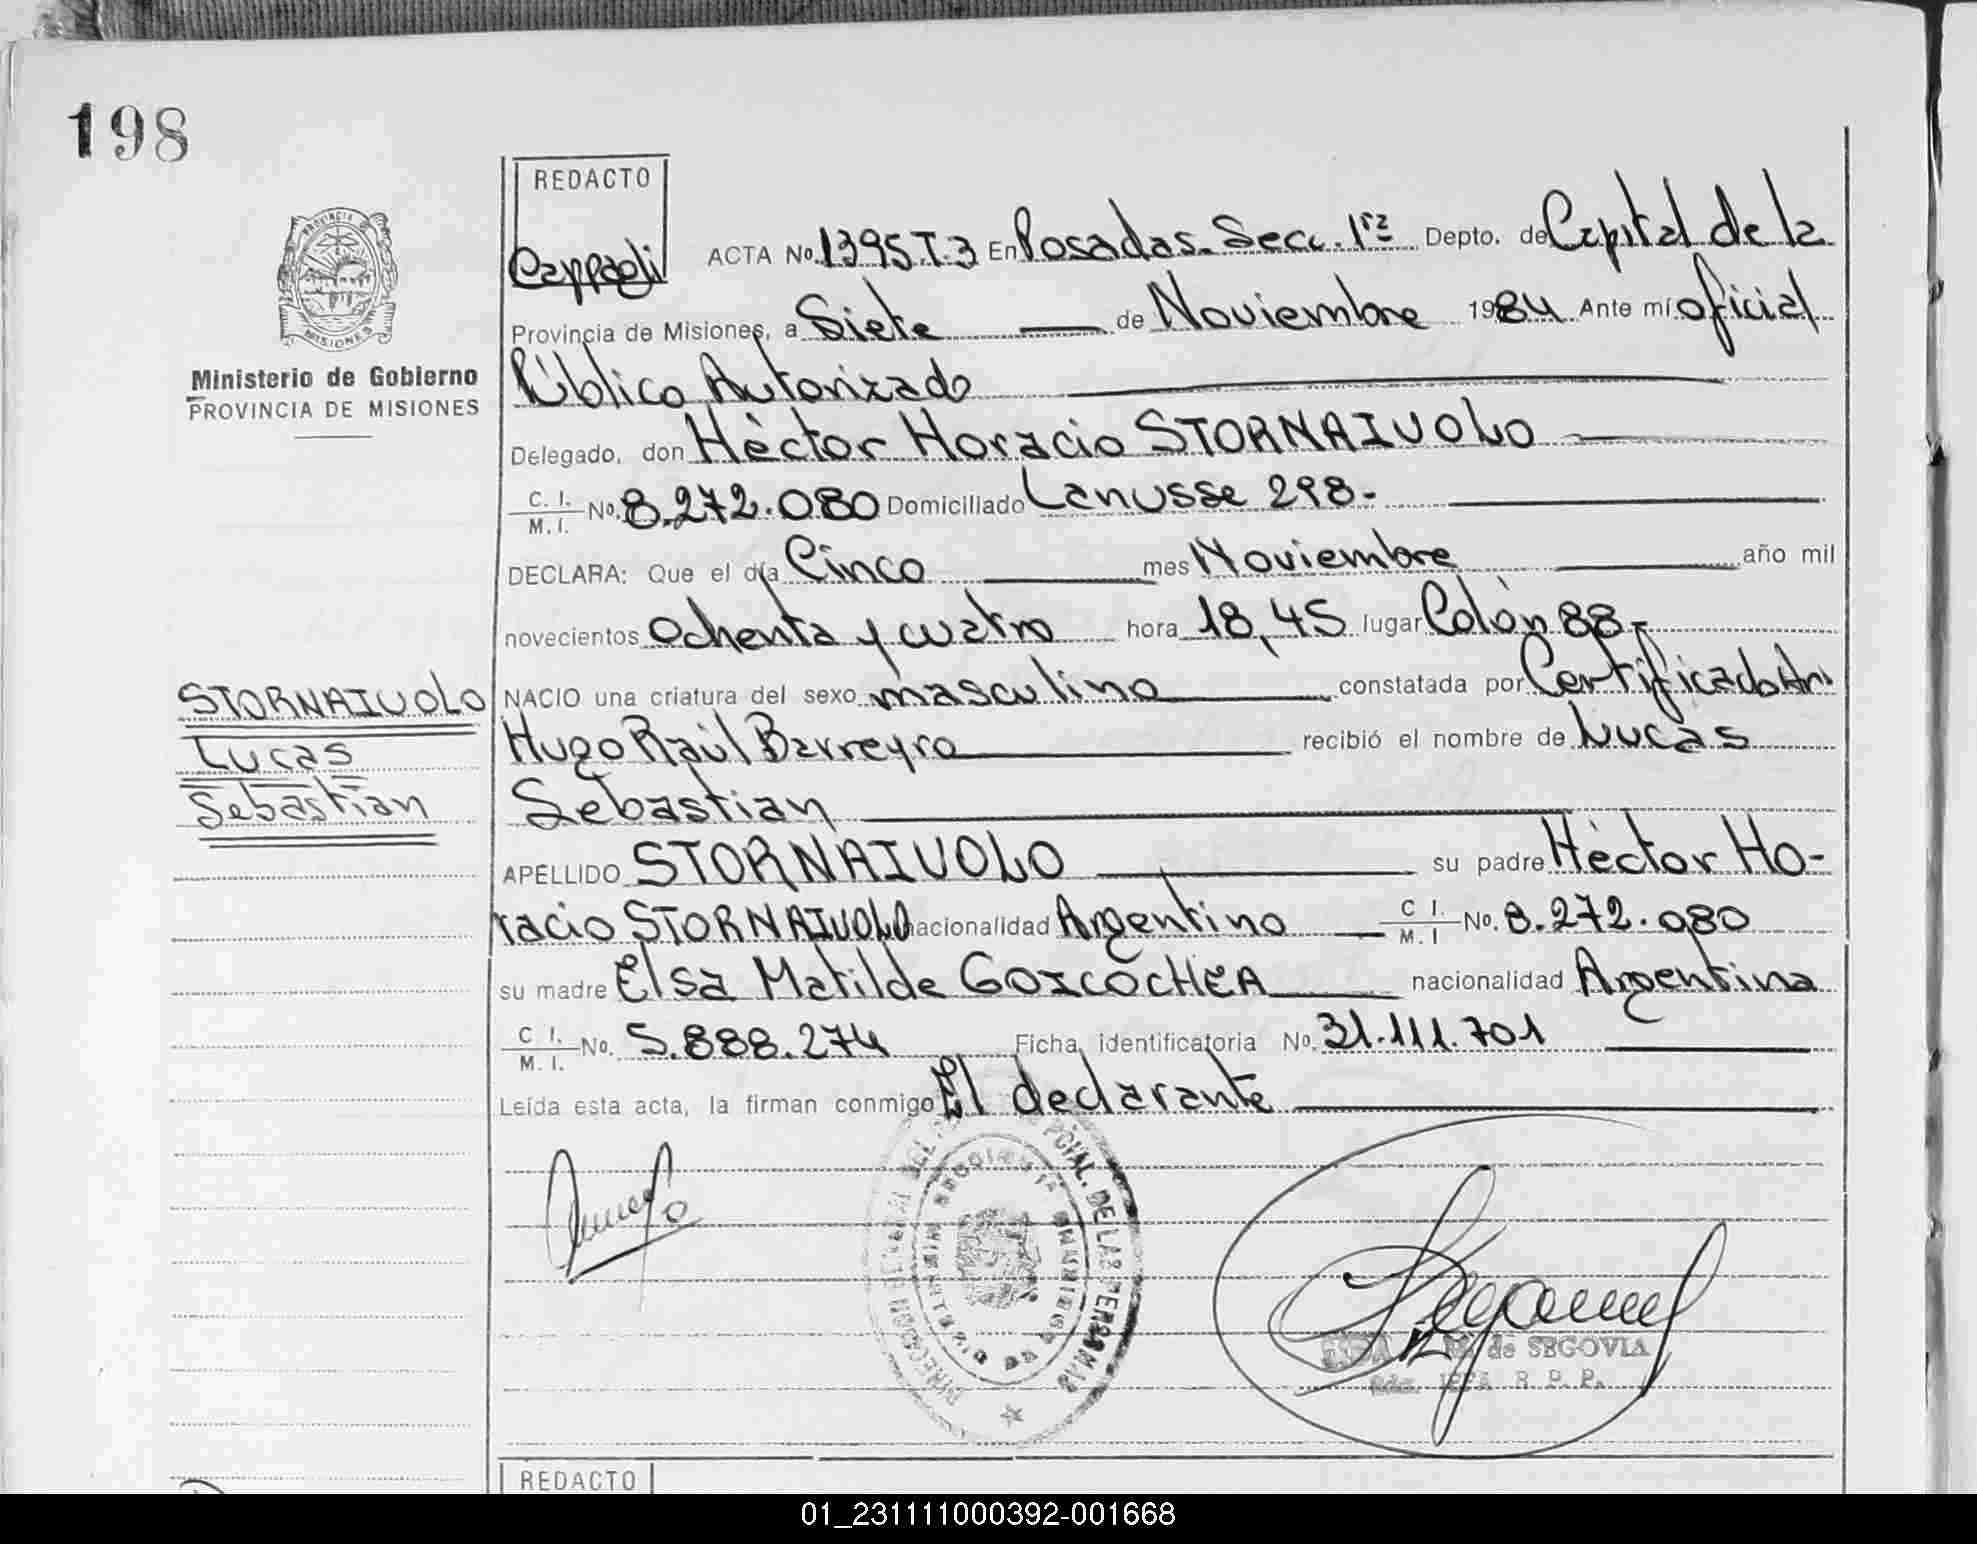 198
REDACTO
Cappagli
PROVINCIA
MISIONES
Ministerio de Gobierno
PROVINCIA DE MISIONES
ACTA No. 1395.T.3 En Posadas. Secc. 1ra Depto. de Capital de la
Provincia de Misiones, a Siete de Noviembre 1984 Ante mí oficial
Público Autorizado
Delegado, don Hèctor Horacio STORNAIUOLO
C. I. M. I. No. 8.272.080 Domiciliado Lanusse 298.-
DECLARA: Que el día Cinco mes Noviembre año mil
novecientos ochenta y cuatro hora 18,45 lugar Colón 88-
NACIO una criatura del sexo masculino constatada por Certificado
Hugo Raúl Barreyro recibió el nombre de Lucas
Sebastian
STORNAIUOLO
Lucas
Sebastian
APELLIDO STORNAIUOLO su padre Hèctor Ho-
racio STORNAIUOLO nacionalidad Argentino C I. M. I No. 8.272.080
su madre Elsa Matilde GOICOCHEA nacionalidad Argentina
C I. M. I. No. 5.888.274 Ficha identificatoria No. 31.111.701
Leída esta acta, la firman conmigo El declarante
DE LAS PERSONAS
de SEGOVIA
R. P. P.
REDACTO
01_231111000392-001668